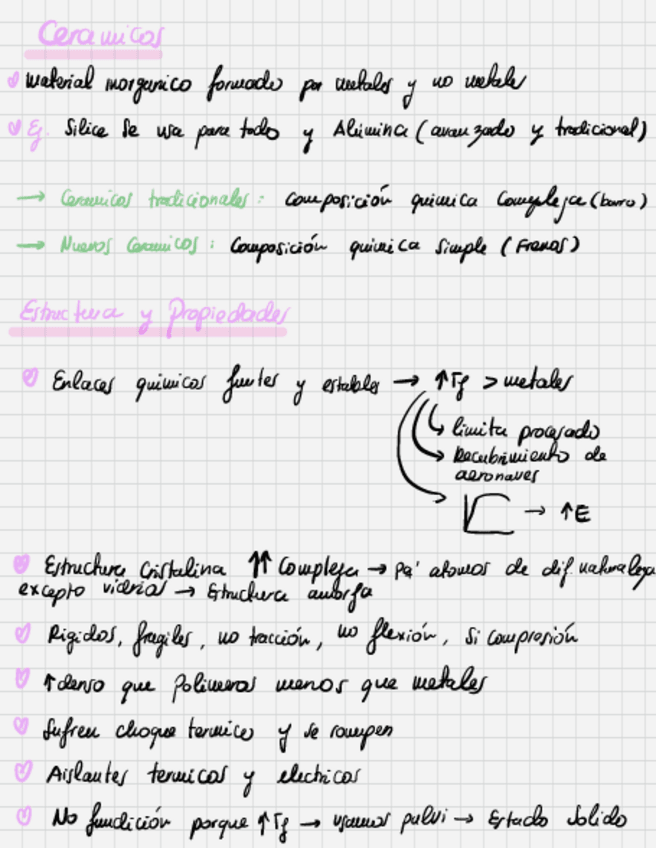 Ceramicos
material inorganico formado por metales y no metales
Ej. Silice se usa para todo y Alumina (avanzado y tradicional)
→ Ceramicos tradicionales: composición quimica compleja (barro)
→ Nuevos Ceramicos: Composición quimica simple (Frenos)
Estructura y Propiedades
Enlaces quimicos fuertes y estables → ↑Tf > metales
limita procesado
Recubrimiento de
aeronaves
→ ↑E
Estructura Cristalina ↑↑ Compleja → pa' atomos de dif. naturaleza
excepto vidrios → Estructura amorfa
Rigidos, fragiles, no tracción, no flexión, si compresión
↑denso que Polimeros menos que metales
Sufren choque termico y se rompen
Aislantes termicos y electricos
No fundición porque ↑Tf → usamos pulvi → Estado Solido